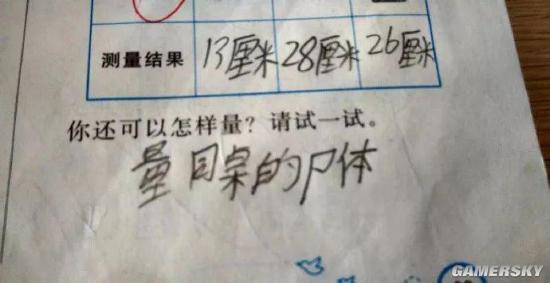 测量结果 13厘米 28厘米 26厘米
你还可以怎样量？请试一试。
量同桌的尸体
GAMERSKY